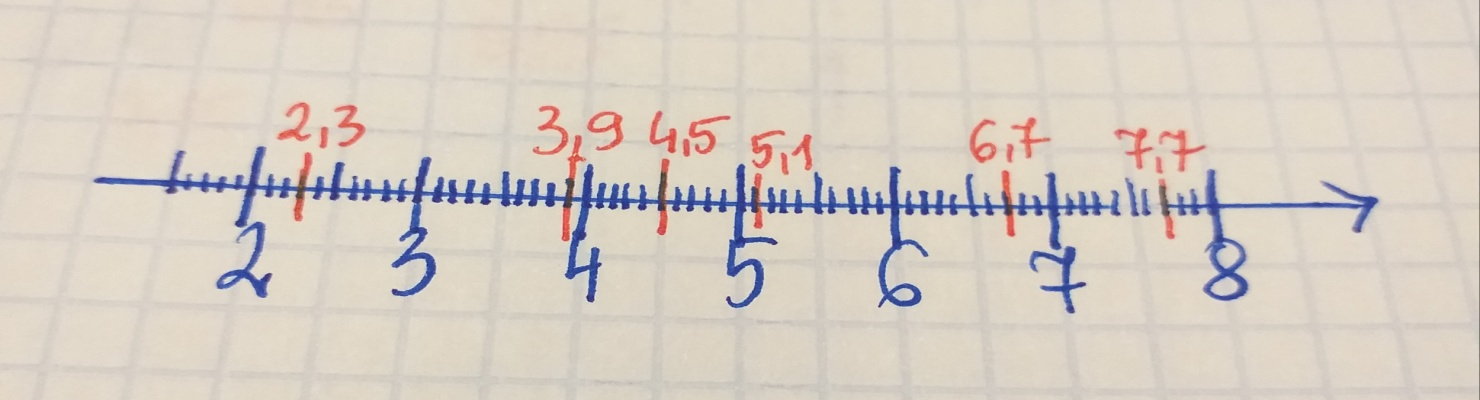 2,3 3,9 4,5 5,1 6,7 7,7
2 3 4 5 6 7 8